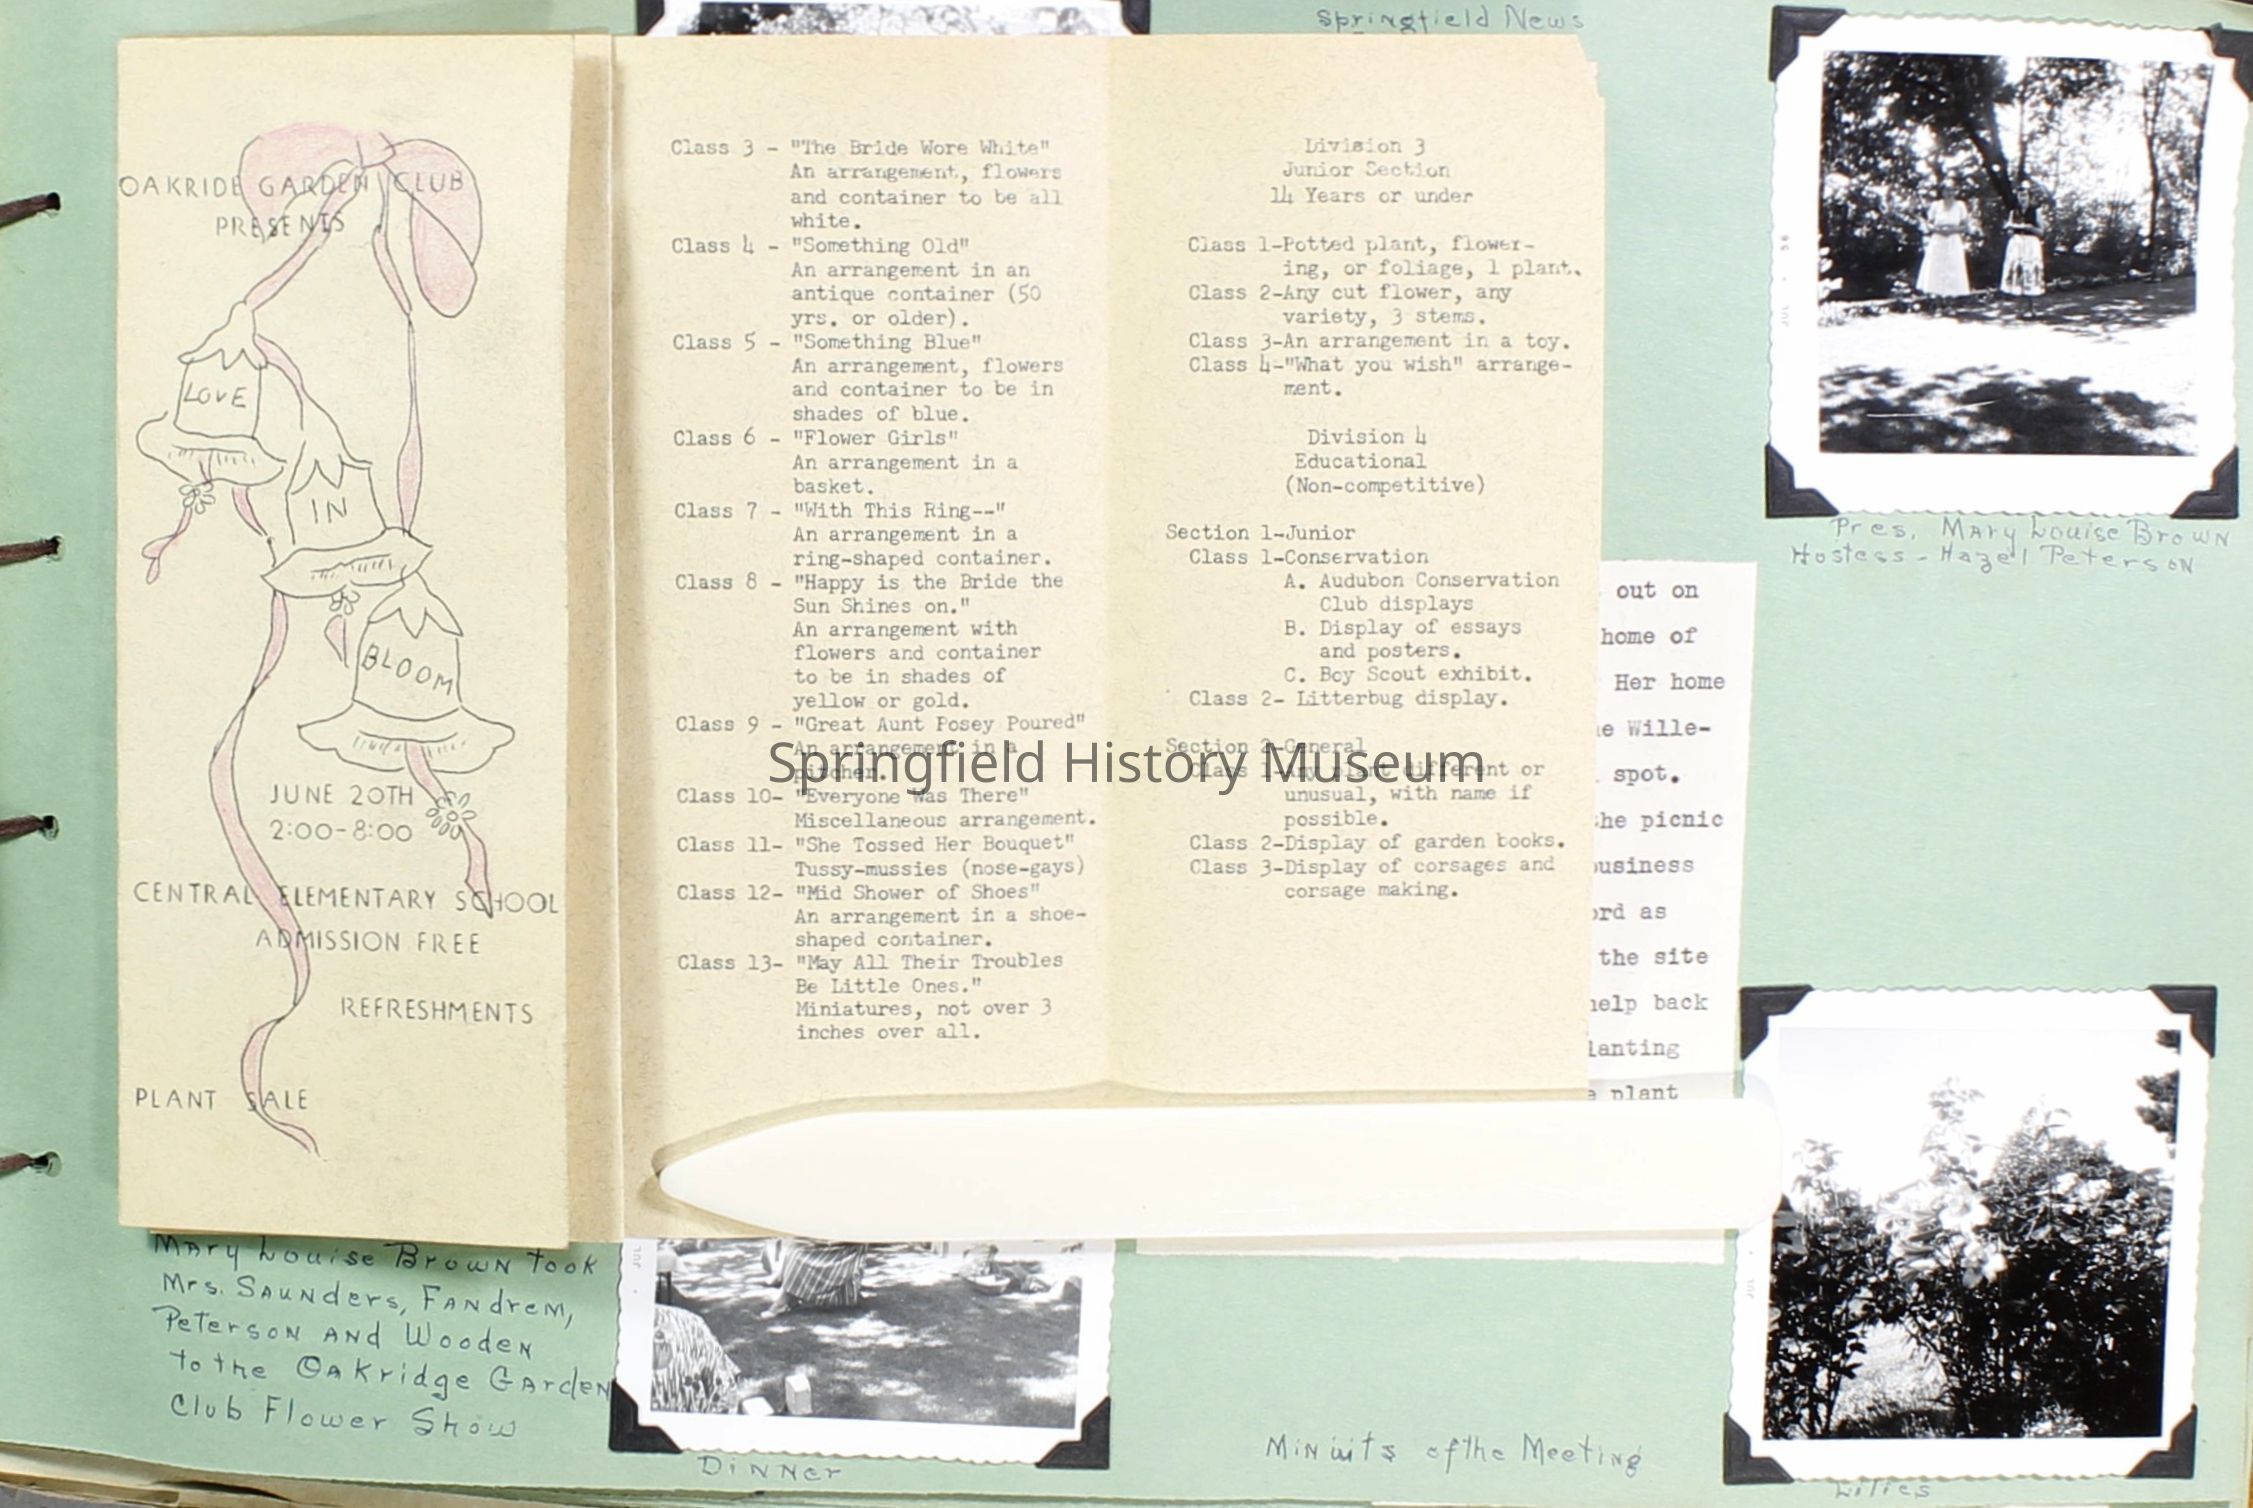 Springfield News
OAKRIDE GARDEN CLUB
PRESENTS
LOVE
IN
BLOOM
JUNE 20TH
2:00-8:00
CENTRAL ELEMENTARY SCHOOL
ADMISSION FREE
REFRESHMENTS
PLANT SALE
Class 3 - "The Bride Wore White"
An arrangement, flowers
and container to be all
white.
Class 4 - "Something Old"
An arrangement in an
antique container (50
yrs. or older).
Class 5 - "Something Blue"
An arrangement, flowers
and container to be in
shades of blue.
Class 6 - "Flower Girls"
An arrangement in a
basket.
Class 7 - "With This Ring--"
An arrangement in a
ring-shaped container.
Class 8 - "Happy is the Bride the
Sun Shines on."
An arrangement with
flowers and container
to be in shades of
yellow or gold.
Class 9 - "Great Aunt Posey Poured"
An arrangement in a
pitcher.
Class 10- "Everyone Was There"
Miscellaneous arrangement.
Class 11- "She Tossed Her Bouquet"
Tussy-mussies (nose-gays)
Class 12- "Mid Shower of Shoes"
An arrangement in a shoe-
shaped container.
Class 13- "May All Their Troubles
Be Little Ones."
Miniatures, not over 3
inches over all.
Division 3
Junior Section
14 Years or under
Class 1-Potted plant, flower-
ing, or foliage, 1 plant.
Class 2-Any cut flower, any
variety, 3 stems.
Class 3-An arrangement in a toy.
Class 4-"What you wish" arrange-
ment.
Division 4
Educational
(Non-competitive)
Section 1-Junior
Class 1-Conservation
A. Audubon Conservation
Club displays
B. Display of essays
and posters.
C. Boy Scout exhibit.
Class 2- Litterbug display.
Section 2-General
Class 1-Any plant different or
unusual, with name if
possible.
Class 2-Display of garden books.
Class 3-Display of corsages and
corsage making.
Springfield History Museum
out on
home of
Her home
Wille-
spot.
the picnic
business
as
the site
help back
plant
Pres. Mary Louise Brown
Hostess - Hazel Peterson
Mary Louise Brown took
Mrs. Saunders, Fandrem,
Peterson and Wooden
to the Oakridge Garden
Club Flower Show
Dinner
Minuits of the Meeting
Lilies